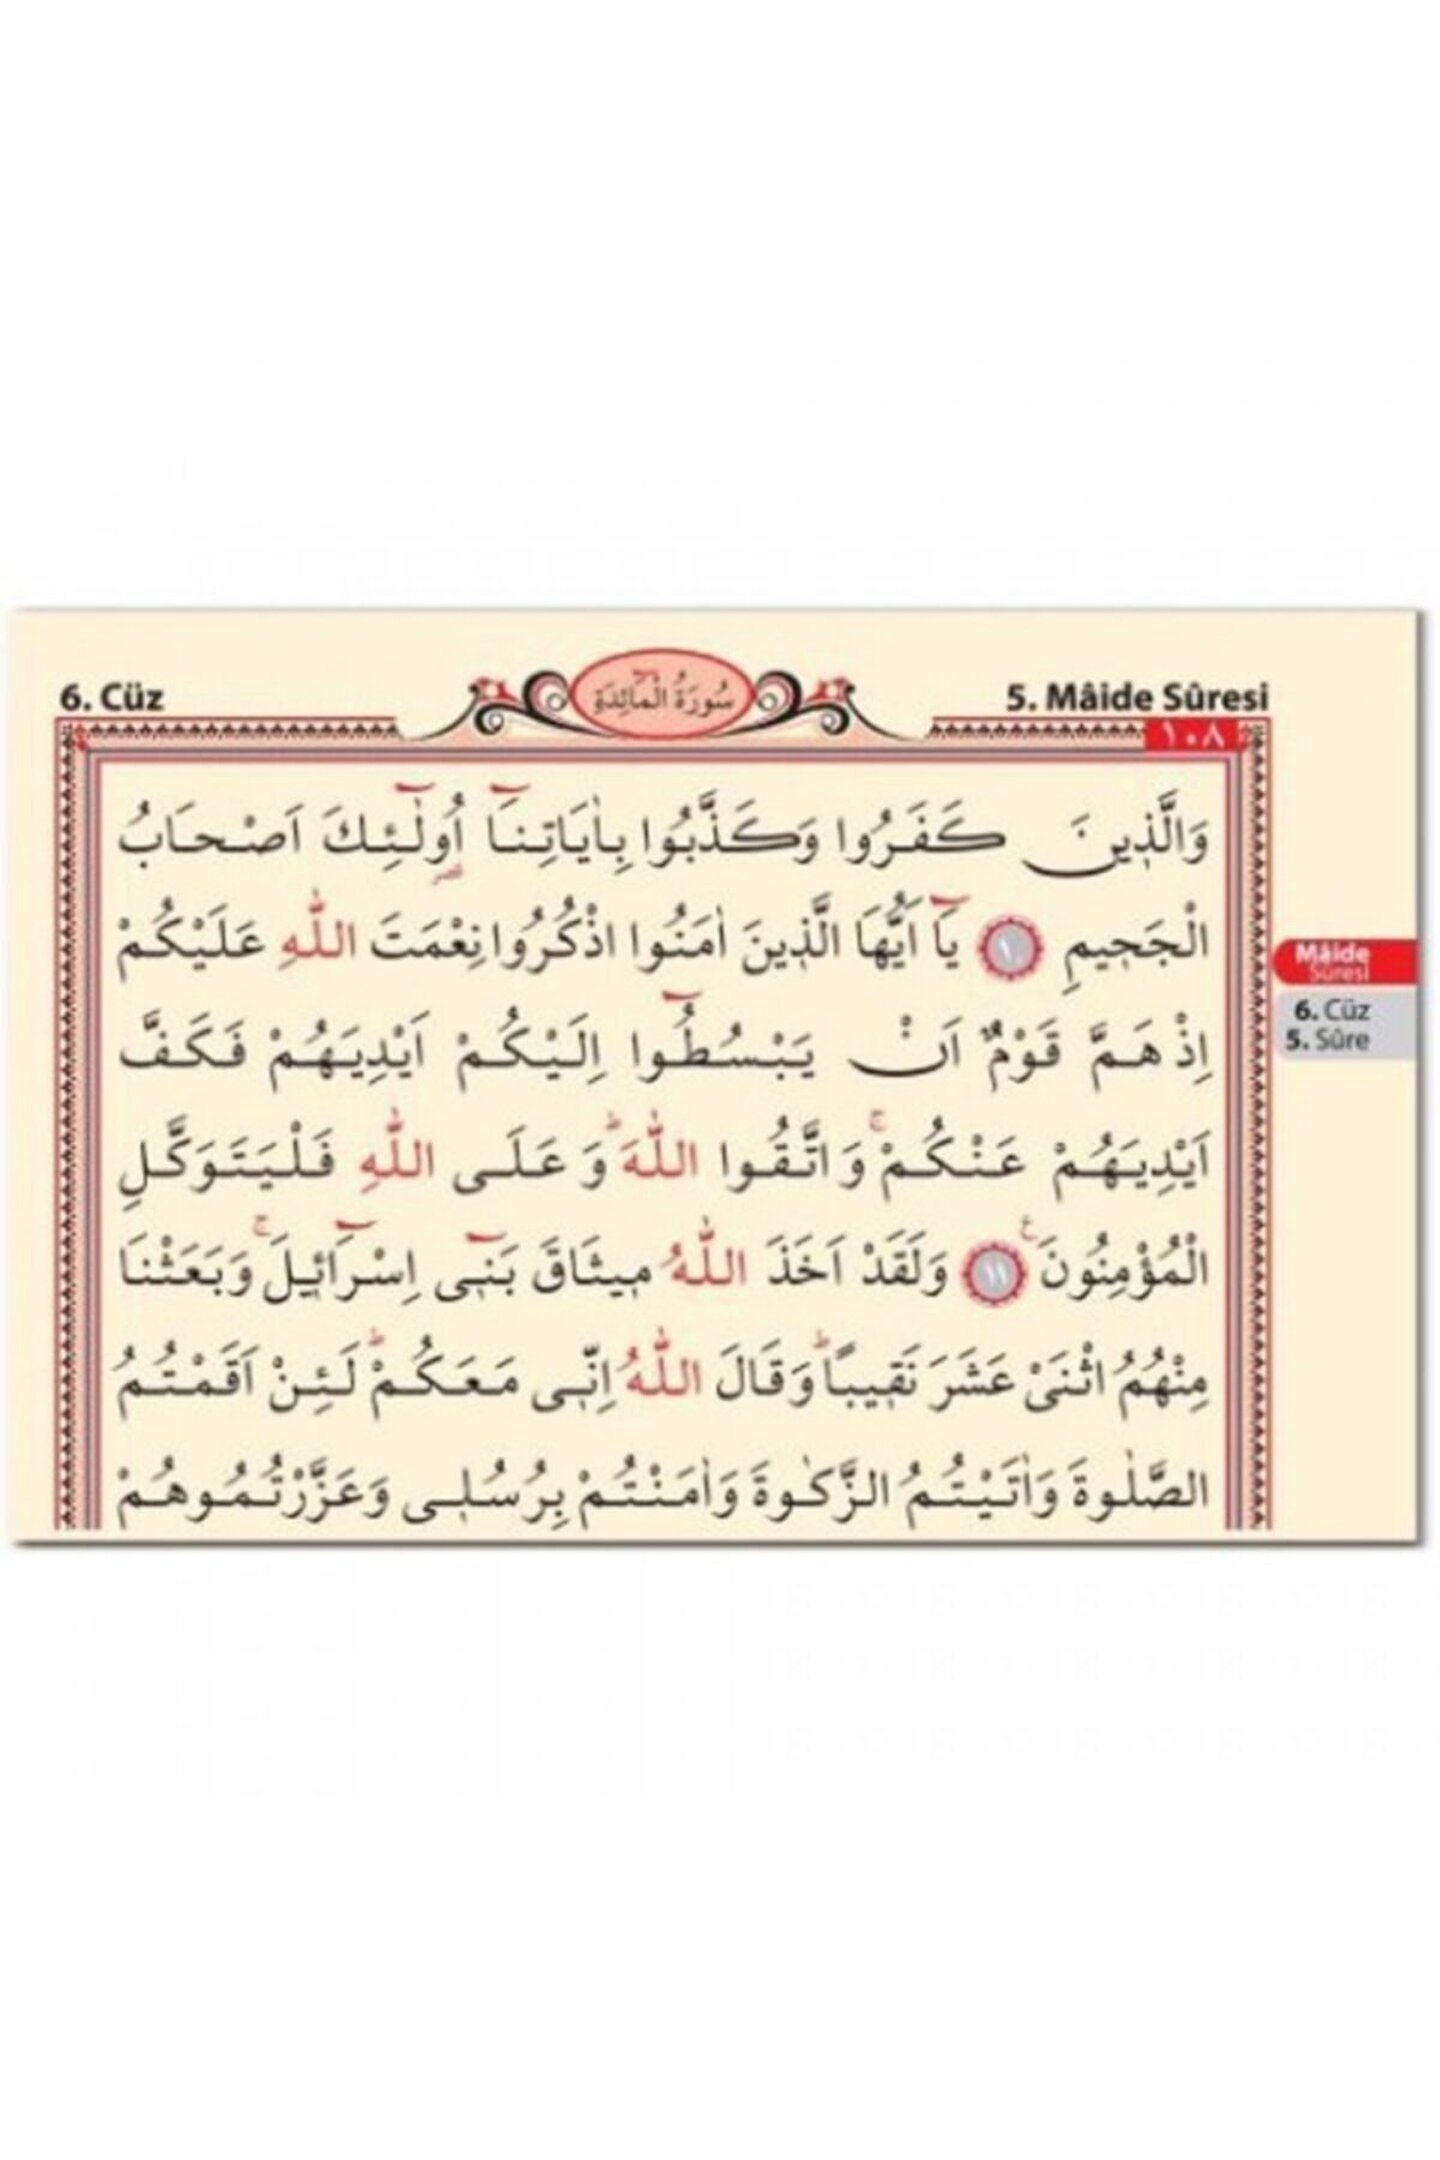 6. Cüz
سُورَةُ الْمَائِدَةِ
5. Mâide Sûresi
١٠٨
وَالَّذ۪ينَ كَفَرُوا وَكَذَّبُوا بِاٰيَاتِنَٓا اُو۬لٰٓئِكَ اَصْحَابُ
الْجَح۪يمِ ١٠ يَٓا اَيُّهَا الَّذ۪ينَ اٰمَنُوا اذْكُرُوا نِعْمَتَ اللّٰهِ عَلَيْكُمْ
اِذْ هَمَّ قَوْمٌ اَنْ يَبْسُطُٓوا اِلَيْكُمْ اَيْدِيَهُمْ فَكَفَّ
اَيْدِيَهُمْ عَنْكُمْۚ وَاتَّقُوا اللّٰهَۜ وَعَلَى اللّٰهِ فَلْيَتَوَكَّلِ
الْمُؤْمِنُونَ۟ ١١ وَلَقَدْ اَخَذَ اللّٰهُ م۪يثَاقَ بَن۪ٓي اِسْرَٓائ۪يلَۚ وَبَعَثْنَا
مِنْهُمُ اثْنَيْ عَشَرَ نَق۪يبًاۜ وَقَالَ اللّٰهُ اِنّ۪ي مَعَكُمْۜ لَئِنْ اَقَمْتُمُ
الصَّلٰوةَ وَاٰتَيْتُمُ الزَّكٰوةَ وَاٰمَنْتُمْ بِرُسُل۪ي وَعَزَّرْتُمُوهُمْ
Mâide
Sûresi
6. Cüz
5. Sûre